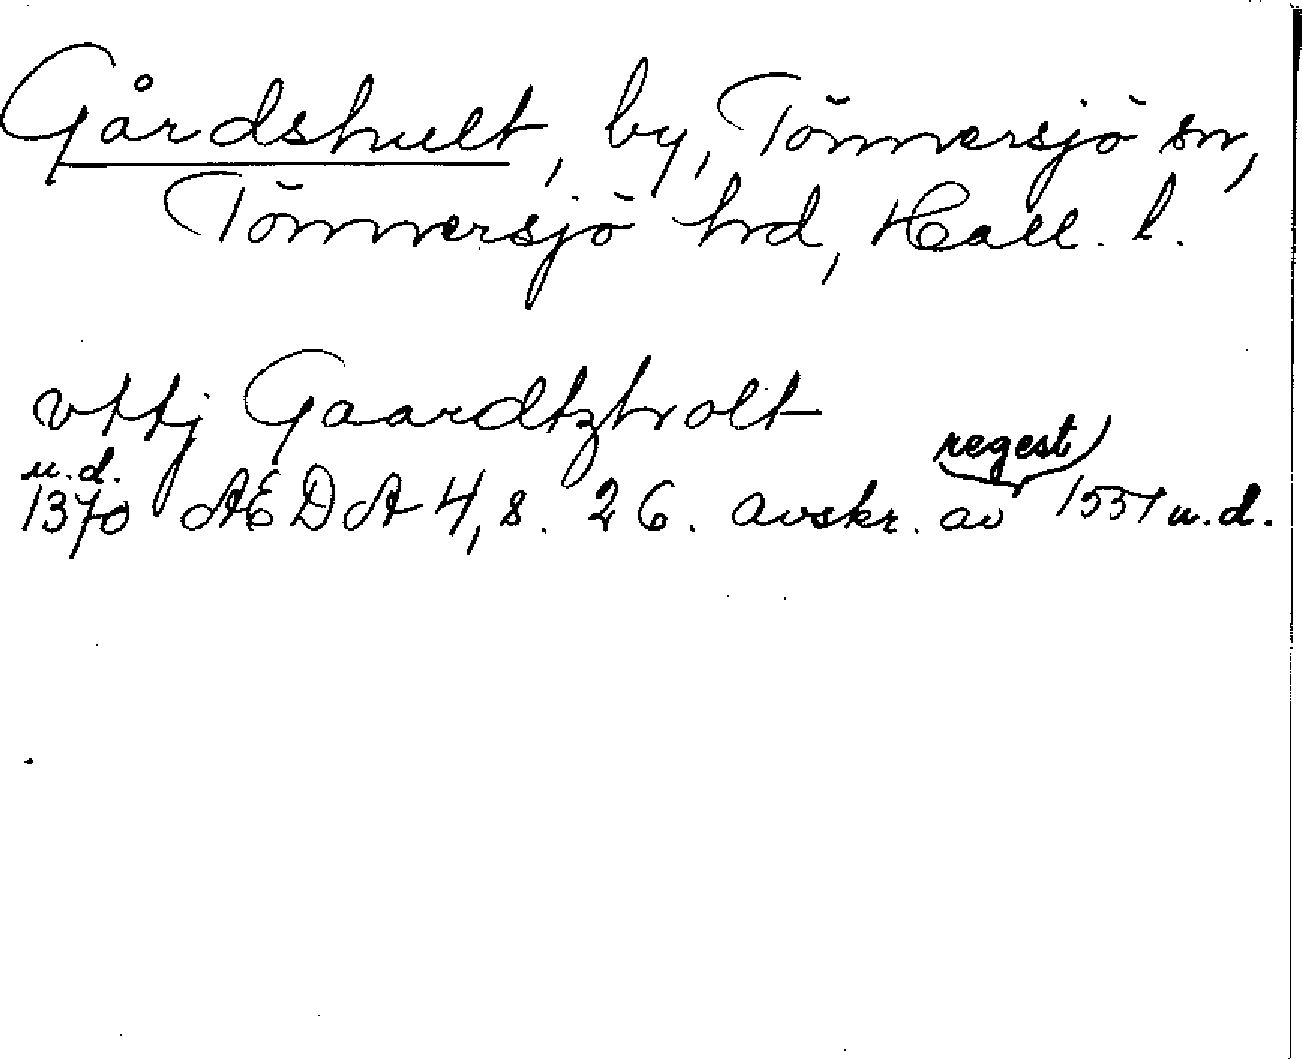 Gårdshult, by, Tönnersjö sn,
Tönnersjö hrd, Hall. l.
vttj Gaardtzholt
u.d.
1370 AEDA 4, s. 26. avskr. av regest) 1551 u.d.